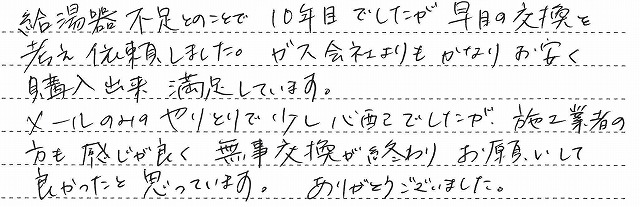 給湯器不足とのことで 10年目でしたが 早目の交換を
考え依頼しました。ガス会社よりもかなりお安く
購入出来 満足しています。
メールのみのやりとりで少し心配でしたが、施工業者の
方も感じが良く 無事交換が終わり お願いして
良かったと思っています。 ありがとうございました。